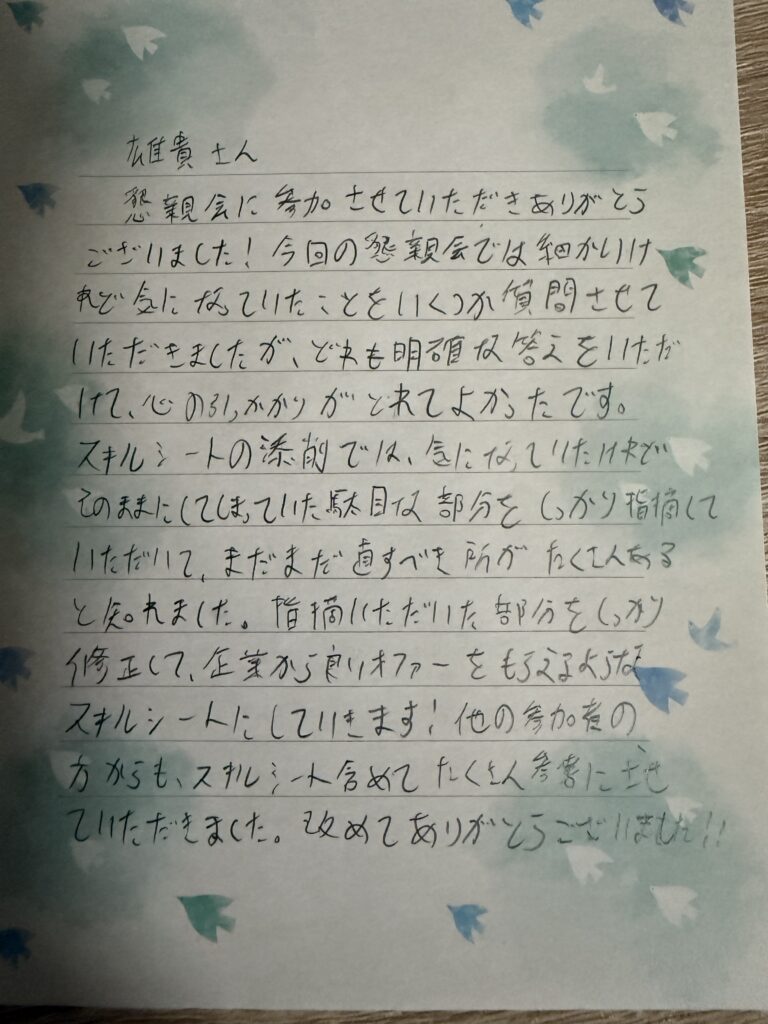 雄貴さん
懇親会に参加させていただきありがとう
ございました！今回の懇親会では細かいけ
れど気になっていたことをいくつか質問させて
いただきましたが、どれも明確な答えをいただ
けて、心の引っかかりがとれてよかったです。
スキルシートの添削では、気になっていたけれど
そのままにしてしまっていた駄目な部分をしっかり指摘して
いただいて、まだまだ直すべき所がたくさんある
と知れました。指摘いただいた部分をしっかり
修正して、企業から良いオファーをもらえるような
スキルシートにしていきます！他の参加者の
方からも、スキルシート含めてたくさん参考にさせ
ていただきました。改めてありがとうございました!!